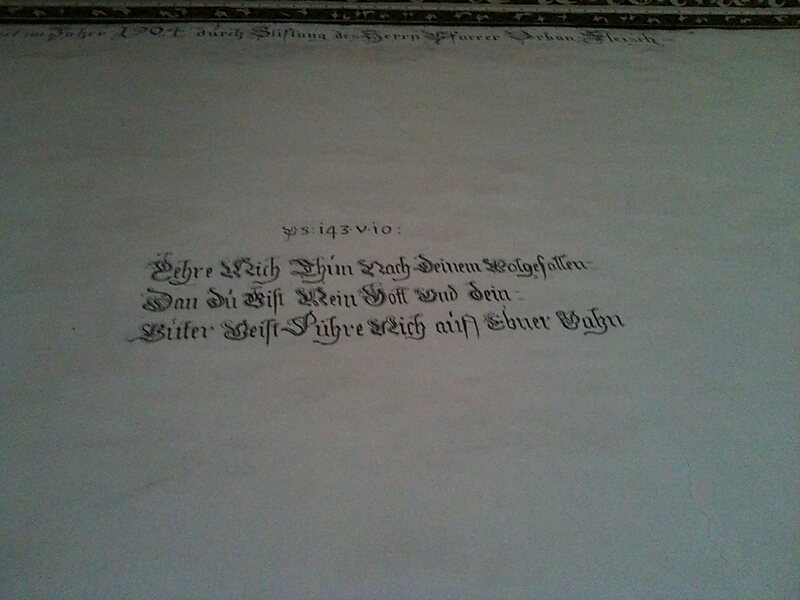 im Jahre 1904 durch Stiftung des Herrn Pfarrer Urban Fleisch
Ps: 143. v. 10:
Lehre Mich Thun Nach Deinem Wolgefallen
Dan du Bist Mein Gott Und dein
Guter Geist Führe Mich auff Ebner Bahn